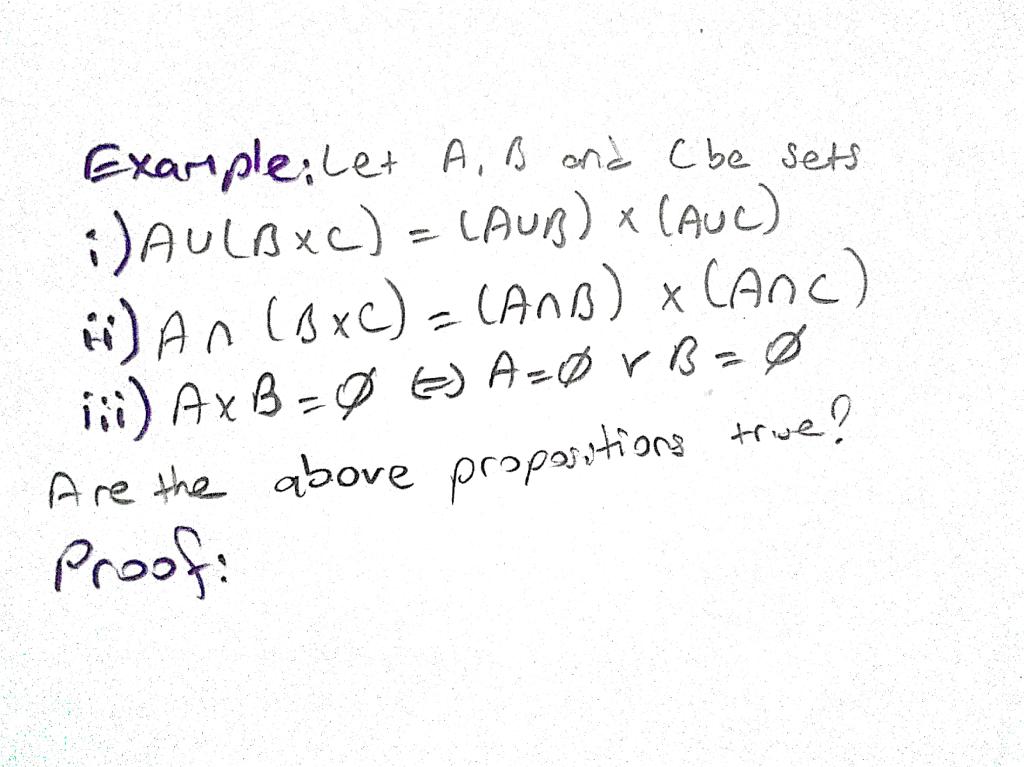 Example: Let A, B and C be sets
i) A∪(B×C) = (A∪B) × (A∪C)
ii) A∩(B×C) = (A∩B) × (A∩C)
iii) A×B=∅ ⇔ A=∅ ∨ B=∅
Are the above propositions true?
Proof: